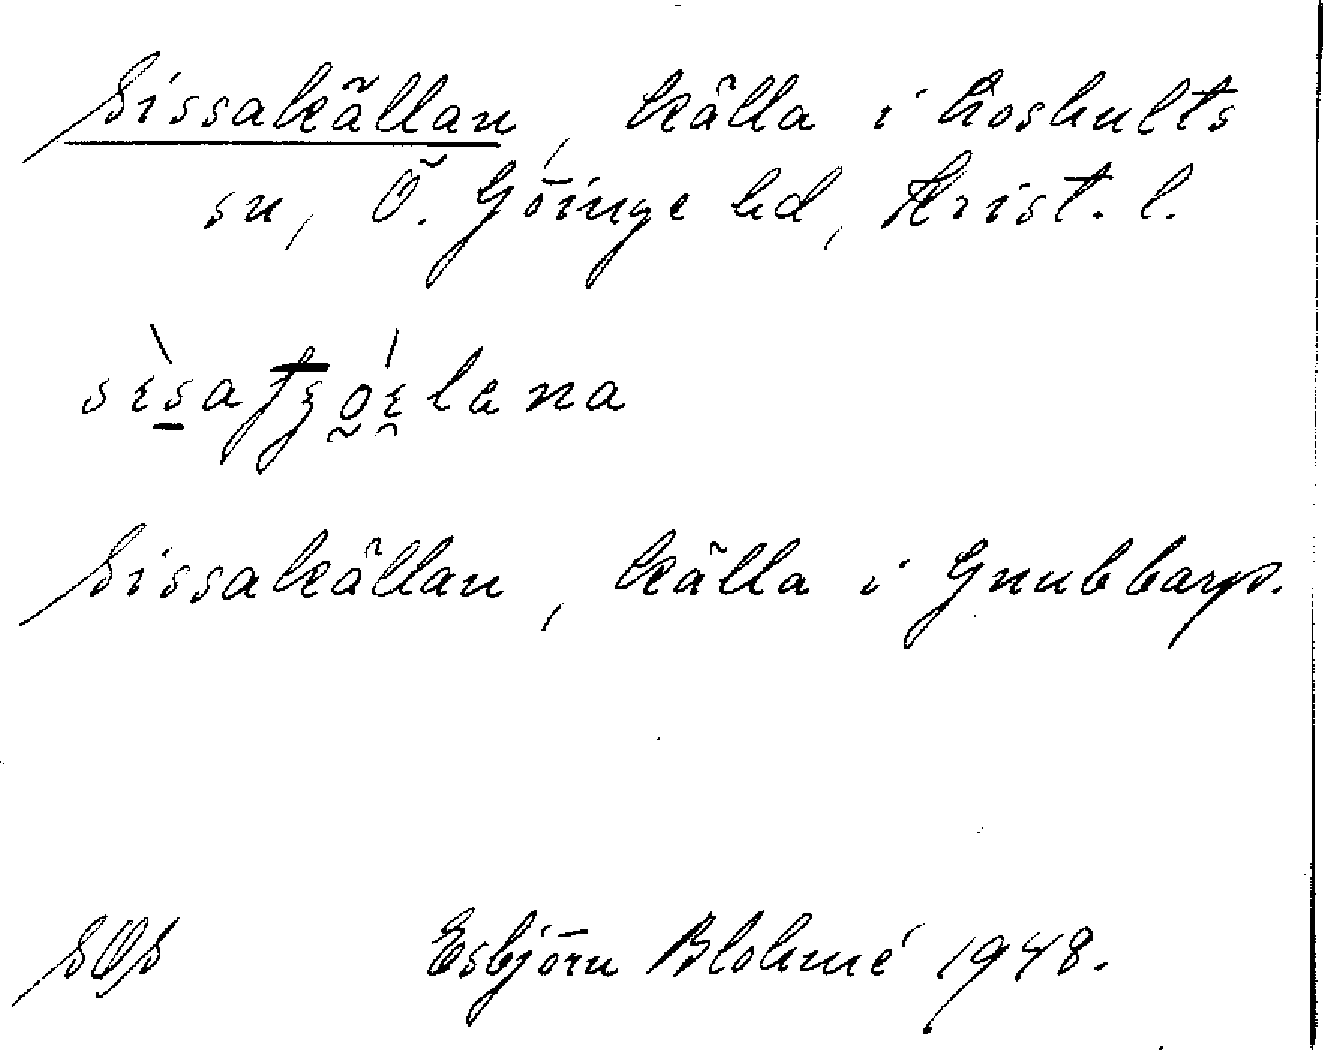 Sissakällan, källa i Loshults
sn, Ö. Göinge hd, Krist. l.
Sissakällan, källa i Gnubbarp.
SOS Esbjörn Blohmé 1948.